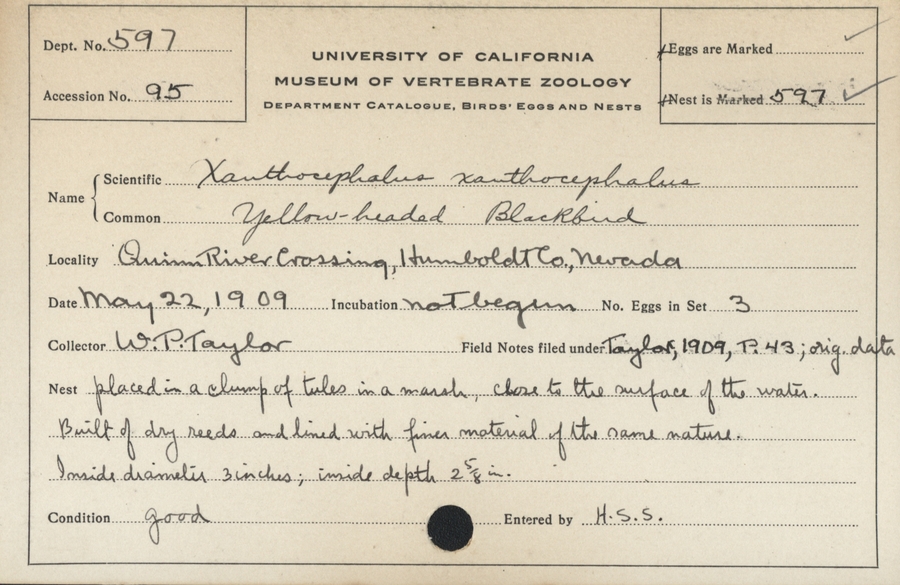 Dept. No. 597
Accession No. 95
UNIVERSITY OF CALIFORNIA
MUSEUM OF VERTEBRATE ZOOLOGY
DEPARTMENT CATALOGUE, BIRDS' EGGS AND NESTS
Eggs are Marked
Nest is Marked 597
Name
Scientific Xanthocephalus xanthocephalus
Common Yellow-headed Blackbird
Locality Quinn River Crossing, Humboldt Co., Nevada
Date May 22, 1909 Incubation not begun No. Eggs in Set 3
Collector W. P. Taylor Field Notes filed under Taylor, 1909, P. 43; orig. data
Nest placed in a clump of tules in a marsh, close to the surface of the water.
Built of dry reeds and lined with finer material of the same nature.
Inside diameter 3 inches; inside depth 2 5/8 in.
Condition good Entered by H.S.S.